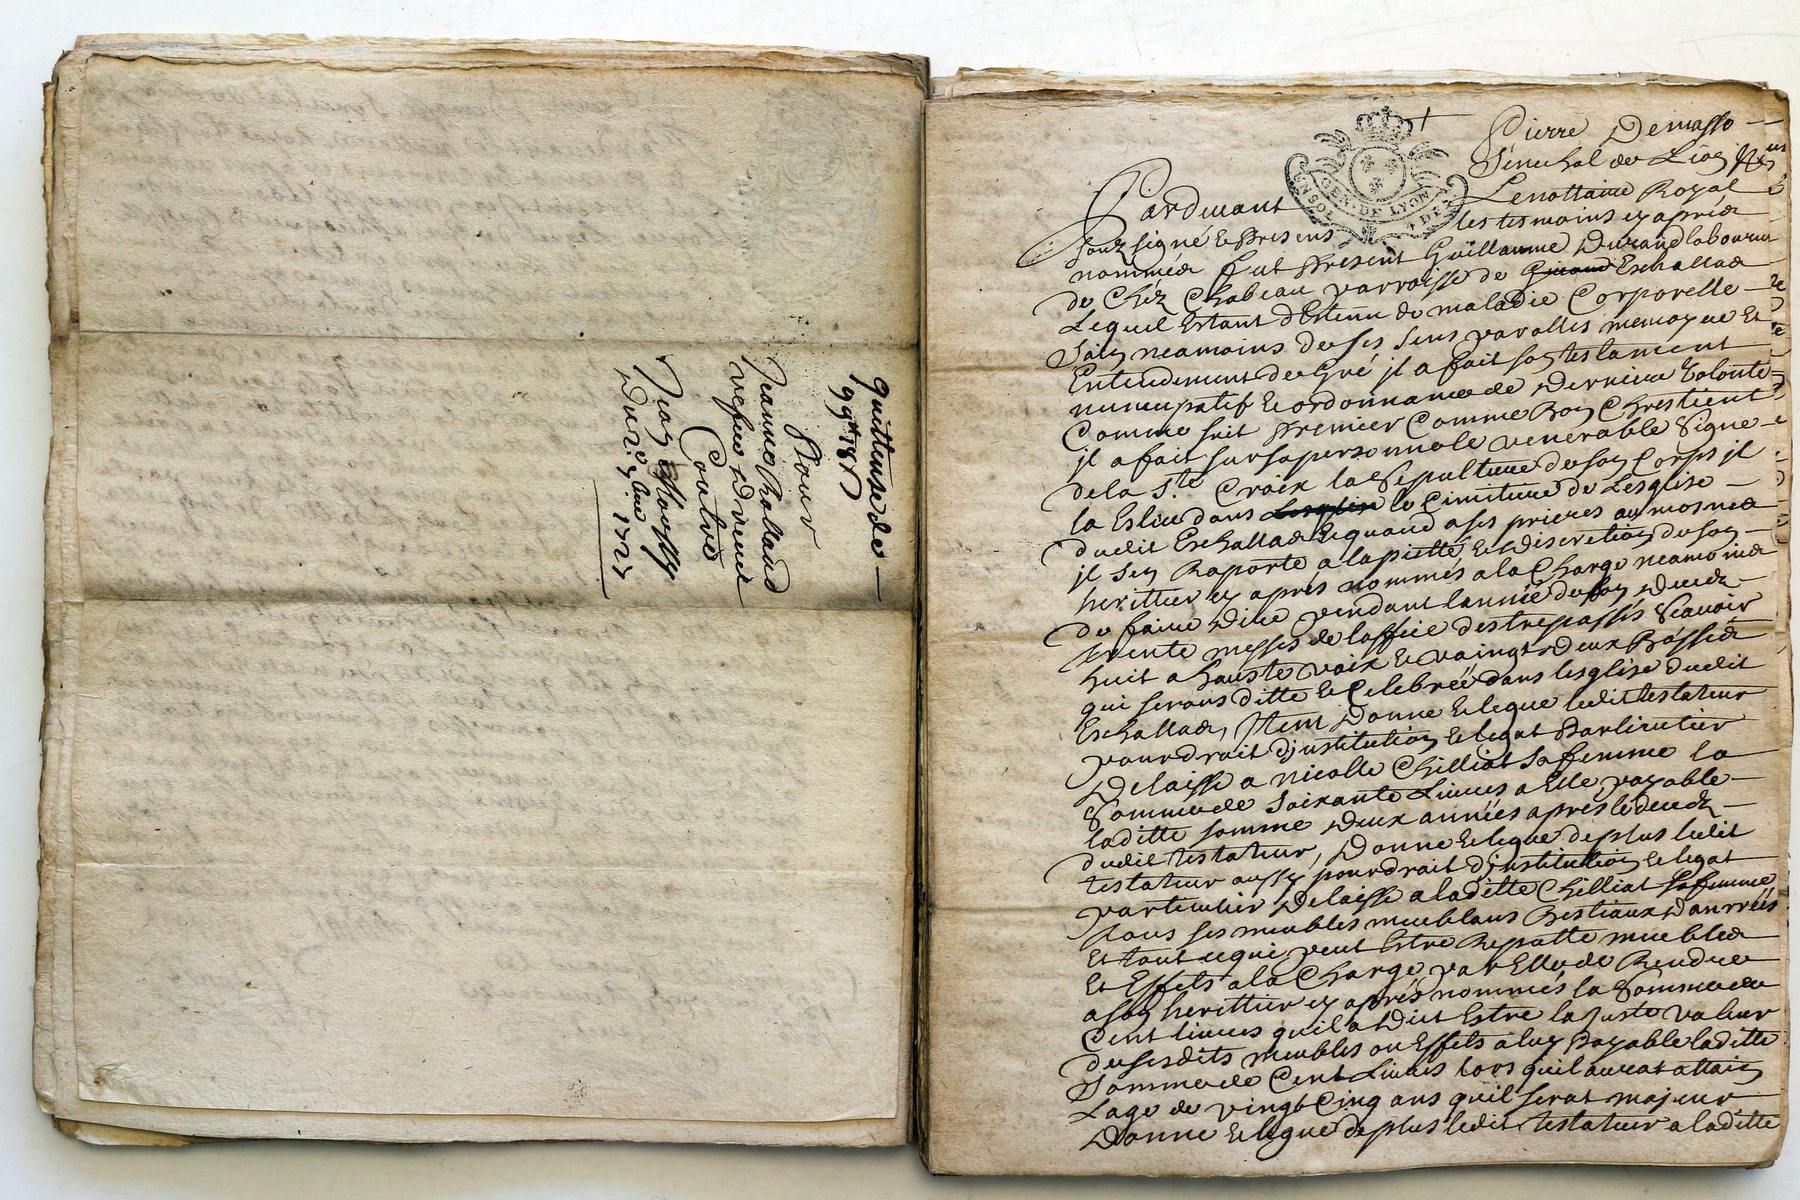 quittense de
99# 18s
Pour
Jeanne Challand
vefue
Contre
Jean
1727
GEN. DE LYON
Pierre Demasso
Senechal de Lion
Pardevant Le nottaire Royal
souz signé & presens les tesmoins cy aprés
nommés fut present Guillaume Durand laboureur
de Chéz Chabeau parroisse de Eschallas
Lequel Estant d'Estenu de maladie Corporelle
Sain neamoins de ses sens parolles memoyre Et
Entendement de gré jl a fait son testament
nuncupatif & ordonnance de derniere volonté
Comme suit premier Comme bon Chrestient
jl a fait sur sa personne le venerable signe
de la Ste Croix la sepulture de son Corps jl
la Eslue dans le Cimitiere de Lesglise
dudit Eschallas & quand a ses prieres aumosnes
jl s'en Raporte a la pietté & discretion de son
herittier cy aprés nommés a la Charge neamoins
de faire dire pendant lannée de son deceds
trente messes de loffice des trepassés sçavoir
huit a hauste voix & vaingt deux Basses
qui serons ditte & Celebrée dans lesglise dudit
Eschallas, Jtem donne & legue ledit testateur
pour droit d'jnstitution & legat particulier
Delaisse a nicolle Chilliat sa femme la
somme de soixante Livres a Elle payable
laditte somme deux années aprés le deceds
dudit testateur, donne & legue de plus ledit
testateur aussy pour droit d'jnstitution & legat
particulier Delaisse a laditte Chilliat sa femme
tous ses meubles meublans Bestiaux danrrées
Et tout ce qui peut Estre Reputte meubles
Et Effets a la Charge par Elle de Rendre
a son herittier cy aprés nommés la somme de
Cent livres quil a dict Estre la juste valeur
de sesdits meubles ou Effets a luy payable laditte
Somme de Cent Livres lors quil aurat attain
Lage de vingt Cinq ans quil serat majeur
Donne & legue de plus ledit testateur a laditte